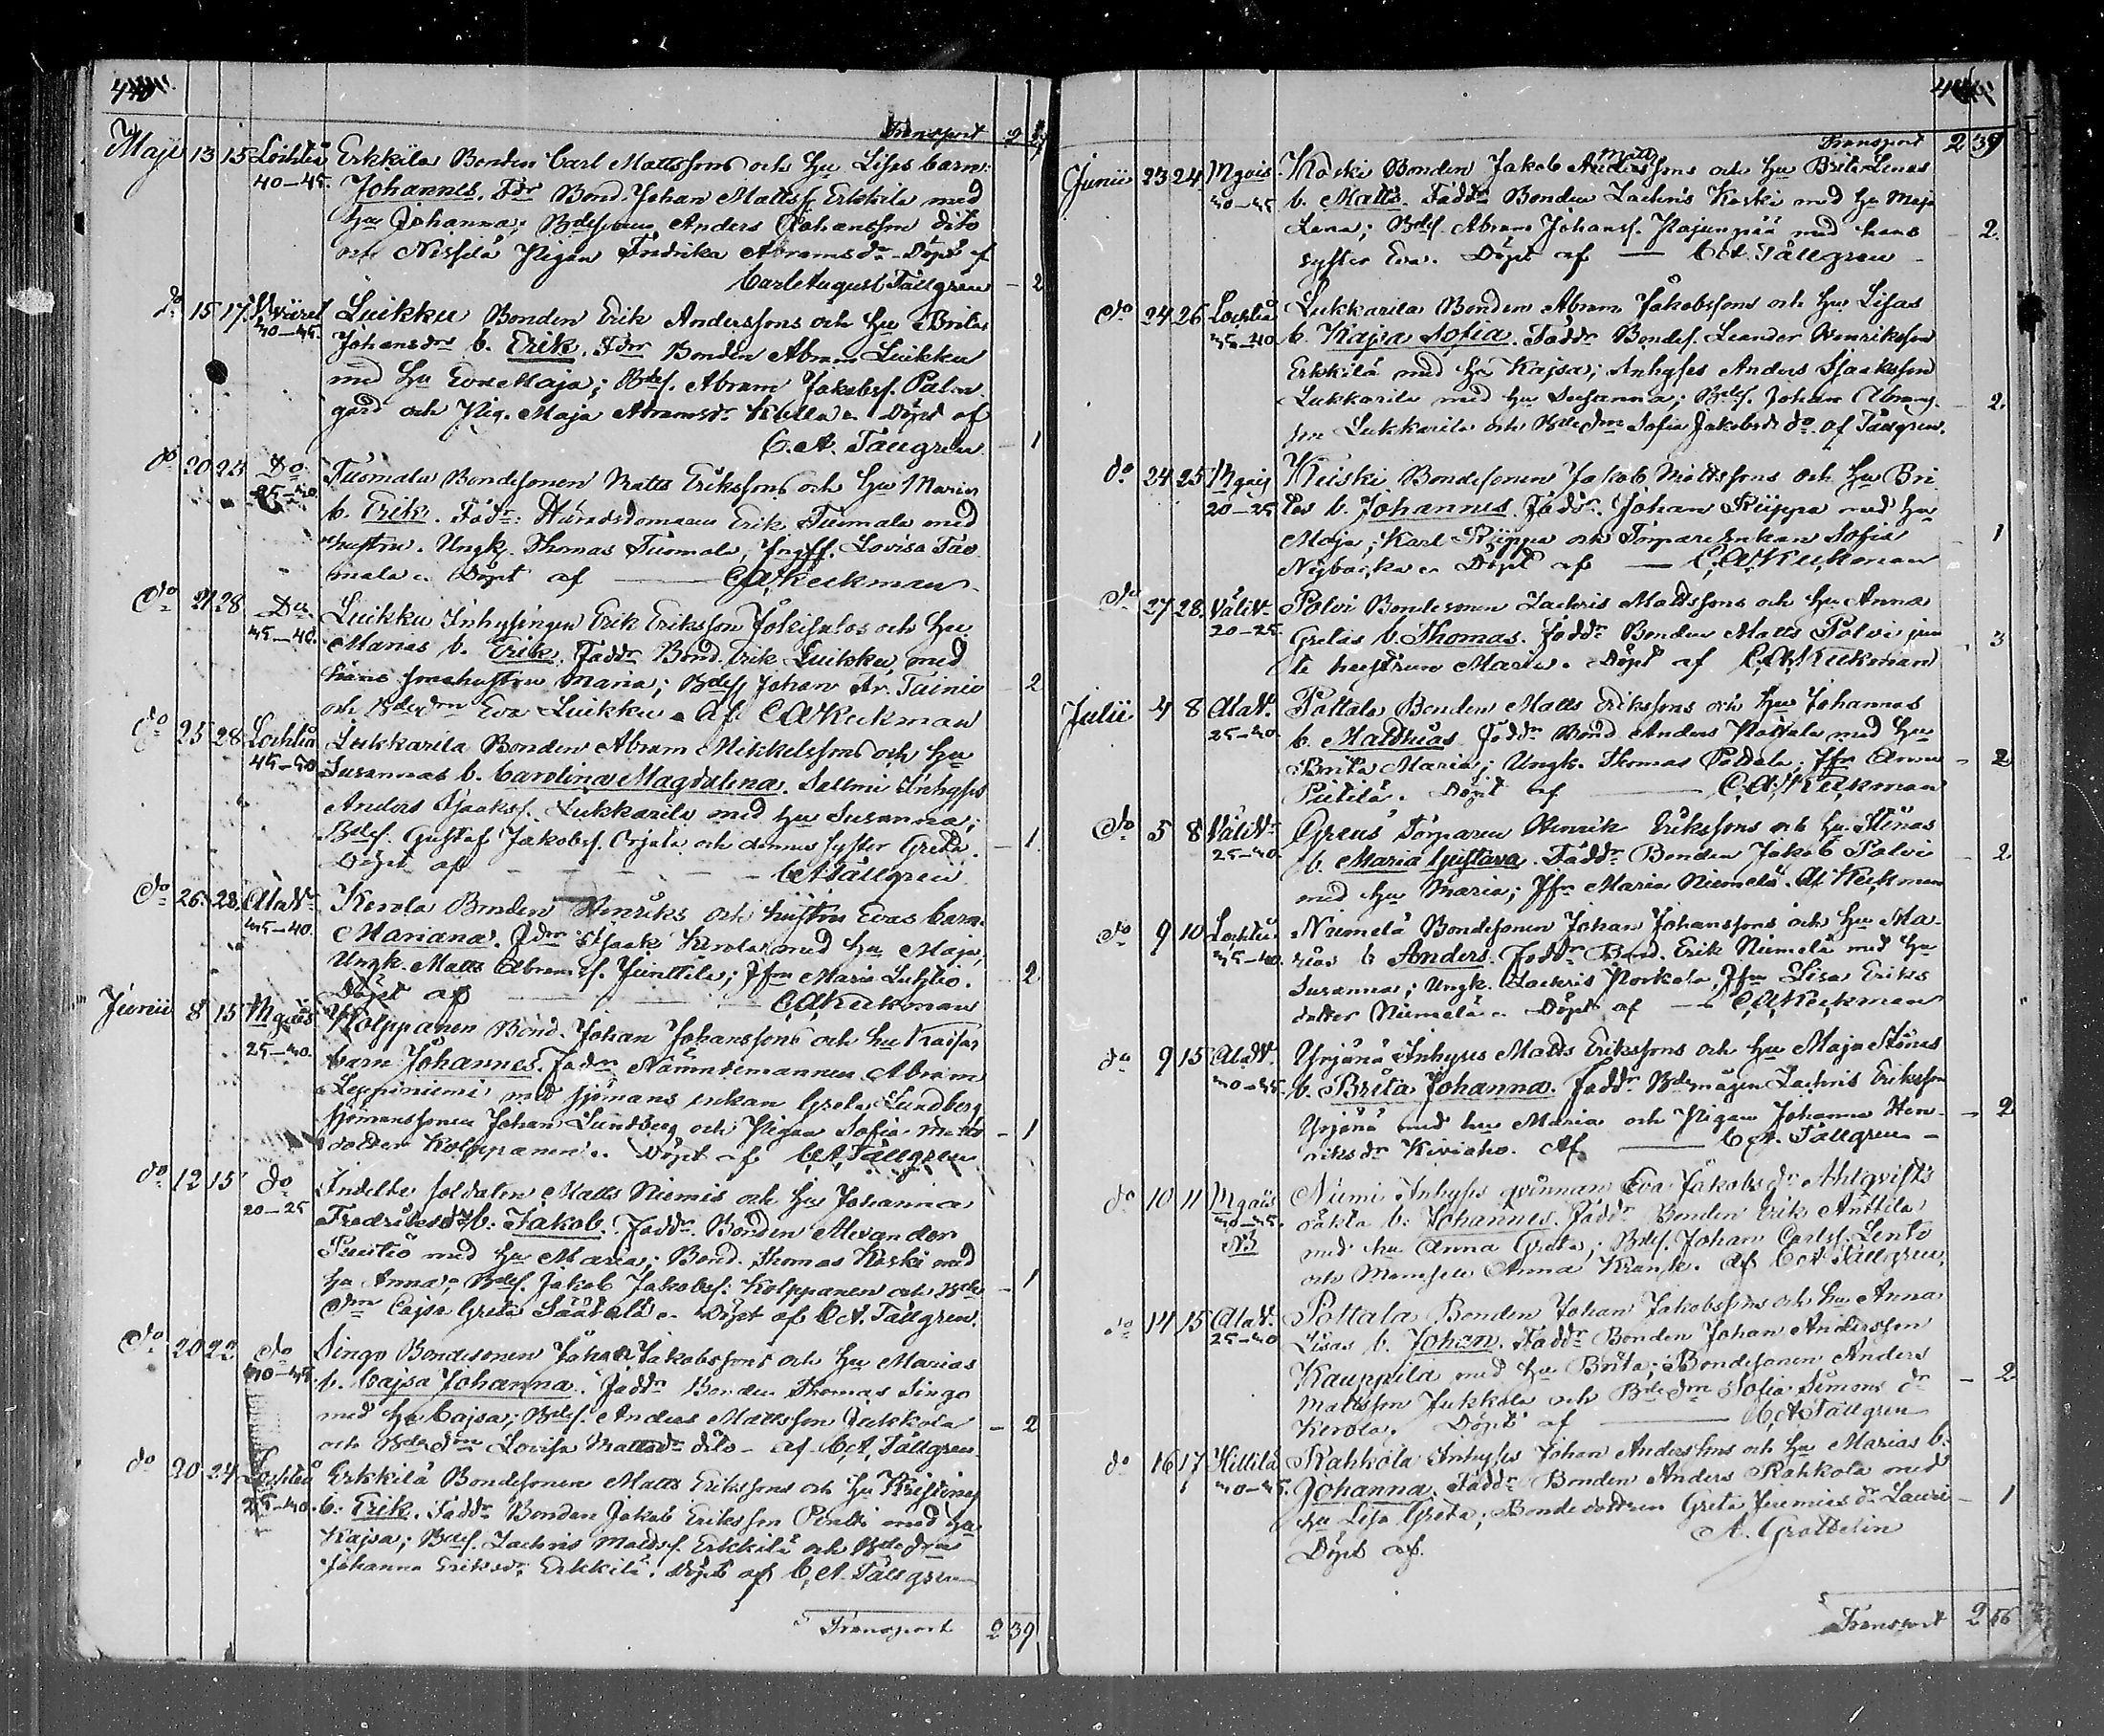 Transport 2
Maji 13 15 Lochteå Erkkilä Bonden Carl Mattssons och Hu Lisas barn:
40–45. Johannes. Fdr Bond. Johan Mattss. Erkkilä med
Hu Johanna; Bdesonen Anders Johansson dito
och Pigan Fredrika Abramsdr. Döpt af
Carl August Tällgren – 2
do 15 17 Luikku Bonden Erik Anderssons och Hu Britas
40–45. Johansdrs b. Erik. Fdrr Bonden Abram Luikku
med Hu Eva Maja; Bdes. Abram Jakobss. Palon
gård och Pig. Maja Abramsdr. Döpt af
C. A. Tällgren – 1
do 20 24 Do Tuomala Bondesonen Matts Erikssons och Hu Marias
35–40. b. Erik. Fadr: Häradsdomaren Erik Tuomala med
hustru. Ungk. Thomas Tuomala, Lovisa Tuo
mala. Döpt af —— C.A. Keckman
do 21 28 Do Luikku Inhysingen Erik Eriksson och Hu
35–40. Marias b. Erik. Faddr Bond. Erik Luikku, med
hans sonahustru Maria; Bdes. Johan Tainio – 2
och Bdedrn Eva Luikku. Af C.A. Keckman
do 25 28 Lochteå Lukkarila Bonden Abram Mikkelssons och Hu
45–50 Susannas b. Carolina Magdalena. Inhyses
Anders Isakss. Lukkarila med Hu Susanna;
Bdes. Gustaf Jakobss. Orjala och dennes syster Greta. – 1.
Döpt af – – – – – C A Tällgren
do 26 28 AlaV. Kerola Bonden Henriks och hustru Evas barn
35–40. Mariana. Fdrr Isaak Kerola med Hu Maja,
Ungk. Matts Abramss. Junttila; Jfrn Maria Luhtio. – 2
Döpt af —— C.A. Keckman
Junii 8 15 Mgais Kolppanen Bond. Johan Johanssons och Hu Kaisas
25–40. barn Johannes. Fadr Nämndemannen Abram
Leppiniemi med sjömans enkan Greta Lundberg
sjömanssonen Johan Lundberg och Pigan Sofia Matts – 1
dotter Kolppanen. Döpt af C.A. Tällgren
do 12 15 do Indelta soldaten Matts Niemis och Hu Johanna
20–25 Fredriksdrs b. Jakob. Faddr. Bonden Alexander
Puutiö med Hu Maria; Bond. Thomas Koski med
Hu Anna; Bdes. Jakob Jakobss. Kolppanen och Bde – 1
drn Cajsa Greta Säätelä. Döpt af C.A. Tällgren.
do 20 22 do Singo Bondesonen Johan Jakobssons och Hu Marias
40–45. b. Cajsa Johanna. Faddr Bonden Thomas Singo
med Hu Cajsa; Bdes. Anders Mattsson Jukkola – 2
och Bdedrn Lovisa Mattsdr dito – af C.A. Tällgren
do 20 24 Lochteå Erkkilä Bondesonen Matts Erikssons och Hu Kristinas
35–40. b. Erik. Faddr Bonden Jakob Eriksson med Hu
Kajsa; Bdes. Zachris Mattss. Erkkilä och Bdedrn
Johanna Eriksdr. Erkkilä. Döpt af C. A. Tällgren
Transport 2 39
Transport 2 39
Junii 23 24 Mgais. Koski Bonden Jakob Matts sons och Hu Brita Lenas
40–45 b. Matts. Faddr Bonden Zachris Koski med Hu Maja
Lena; Bdes. Abram Johanss. Pajunpää med hans – 2.
syster Eva. Döpt af —— C A. Tällgren
do 24 26 Lochteå Lukkarila Bonden Abram Jakobssons och Hu Lisas
35–40 b. Kajsa Sofia. Faddr Bondes. Leander Henriksson
Erkkilä med Hu Kajsa; Inhyses Anders Isaksson
Lukkarila med Hu Susanna; Bdes. Johan Abrams – 2.
son Lukkarila och Bdedrn Sofia Jakobsdr do. af Tällgren.
do 24 25 Mgais Keiski Bondesonen Jakob Mattssons och Hu Bri
20–25 tas b. Johannes. Faddr. Johan Riippa med Hu
Maja; Karl Riippa och Torpare Enkan Sofia – 1
Nybacka. Döpt af — C. A. Keckman
do 27 28 VäliV. Polvi Bondesonen Zachris Mattssons och Hu Anna
20–25 Gretas b. Thomas. Faddr Bonden Matts Polvi jem – 3
te hustrun Maria. Döpt af C. A. Keckman
Julii 4 8 AlaV. Pottala Bonden Matts Erikssons och Hu Johannas
25–40. b. Matthias. Faddr Bond. Anders Pottala med Hu
Brita Maria; Ungk. Thomas Pottala; Jfr Anna – 2
Piitilä. Döpt af —— C. A. Keckman
do 5 8 VäliV. Greus Torparen Henrik Erikssons och Hu Stinas
25–40. b. Maria Gustava. Faddr Bonden Jakob Polvi – 2
med Hu Maria; Jfr Maria Niemelä. Af Keckman
do 9 10 Lochteå Niemelä Bondesonen Johan Johanssons och Hu Ma-
35–40. rias b Anders. Faddr Bond. Erik Niemelä med Hu
Susanna; Ungk. Zachris Porkola, Jfr Lisa Eriks
dotter Niemelä. Döpt af — C. A. Keckman
do 9 15 AlaV. Yrjänä Inhyses Matts Erikssons och Hu Maja Stinas
40–45. b. Brita Johanna. Faddr Bdemågen Zachris Eriksson
Yrjänä med hu Maria och Pigan Johanna Hen- – 2
riksdr Kiviaho. Af —— C A. Tällgren –
do 10 11 Mgais Niemi Inhyses qvinnan Eva Jakobsdr Ahlqvists
40–45. oäkta b: Johannes. Faddr Bonden Erik Anttila
NB med hu Anna Greta; Bdes. Johan Carlss. Lento
och Mamsell Anna Krank. Af C A Tällgren.
do 14 15 AlaV. Pottala Bonden Johan Jakobssons och Hu Anna
25–40 Lisas b. Johan. Faddr Bonden Johan Andersson
Kauppila med Hu Brita; Bondesonen Anders
Mattsson Jukkola och Bdedrn Sofia Simons dr – 2
Kerola. Döpt af —— C. A Tällgren
do 16 17 Kittilä Rahkola Inhyses Johan Anderssons och Hu Marias b.
40–45. Johanna. Faddr Bonden Anders Rahkola med
Hu Lisa Greta; Bondedottren Greta Jeremias dr Lauri – 1
Döpt af. A. Grottelin
Transport 2 56